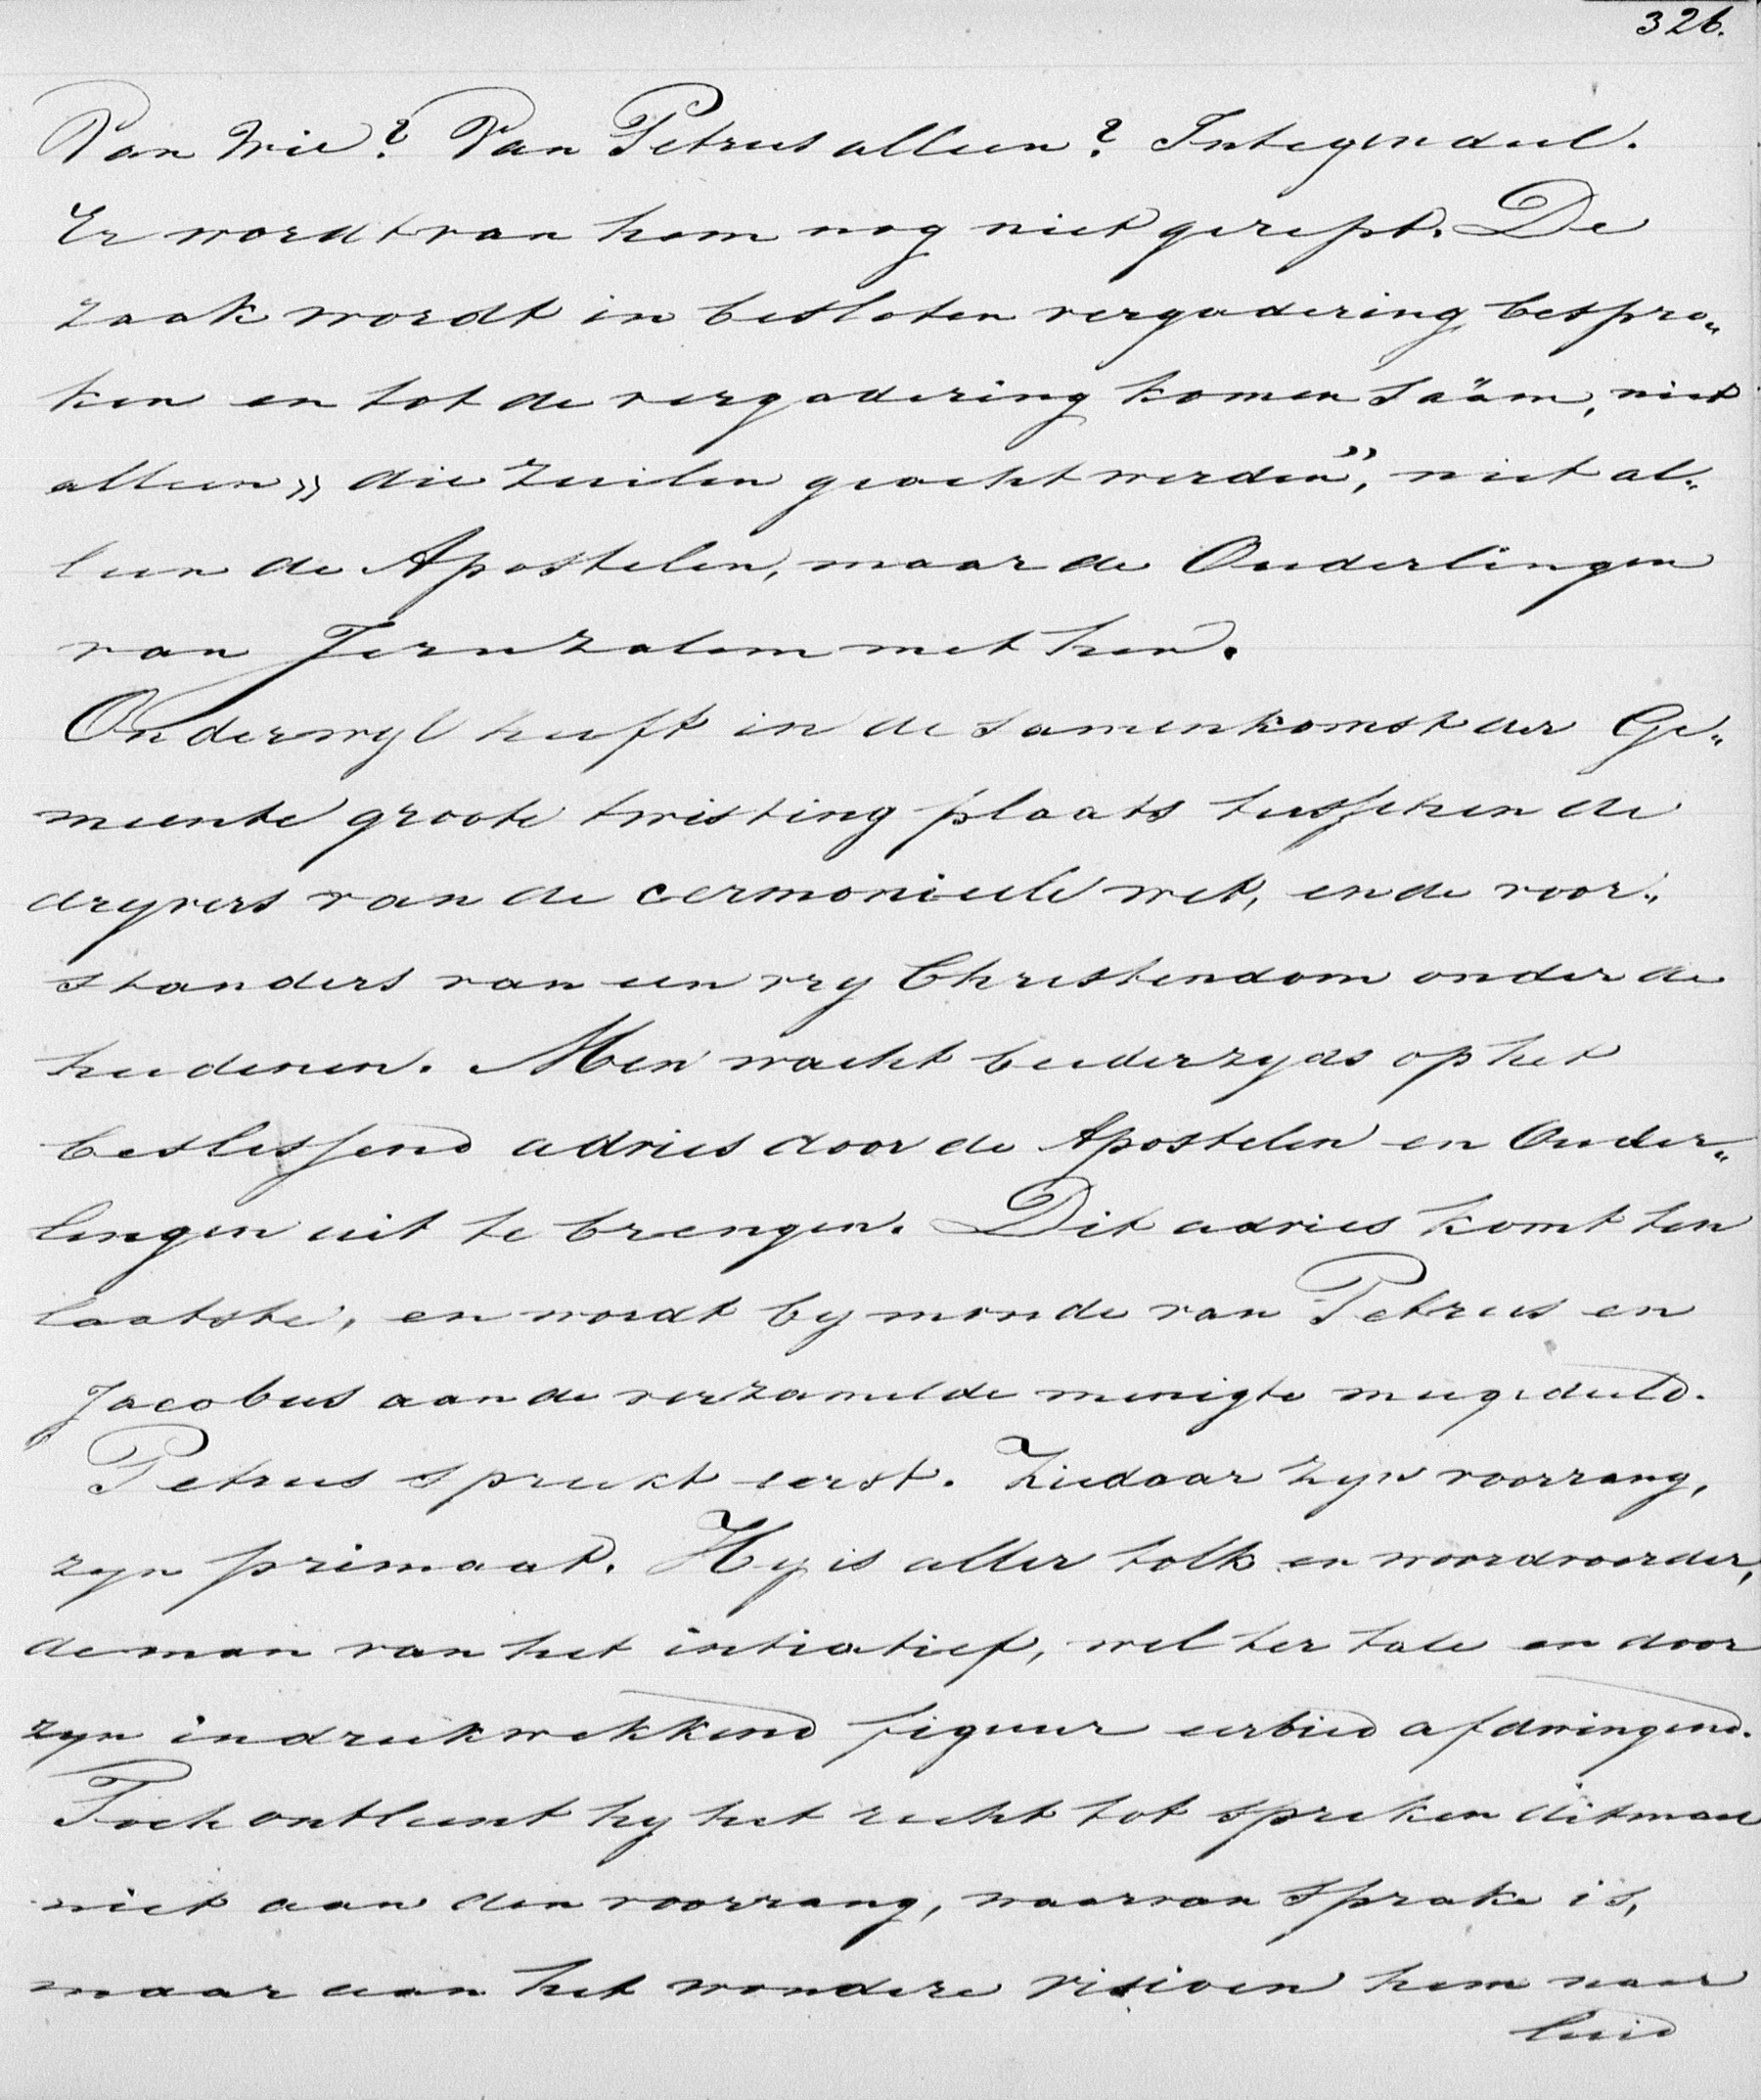 326.
Van Wie? Van Petrus alleen? Integendeel.
Er wordt van hem nog niet gerept. De
zaak wordt in besloten vergadering bespro„
ken en tot de vergadering komen säam, niet
alleen „ die zuilen geacht werden”, niet al„
leen de Apostelen, maar de Ouderlingen
van Jeruzalem met hen.
Onderwyl heeft in de samenkomst der Ge„
meente groote twisting plaats tusschen de
dryvers van de cermonieele wet, en de voor„
standers van een vry Christendom onder de
heidenen. Men wacht beiderzyds op het
beslissend advies door de Apostelen en Ouder„
lingen uit te brengen. Dit advies komt ten
laatste, en wordt by monde van Petrus en
Jacobus aan de verzamelde menigte meegedeeld.
Petrus spreekt eerst. Ziedaar zyn voorrang,
zyn primaat. Hy is aller tolk en woordvoerder,
de man van het intiatief, wel ter tale en door
zyn indrukwekkend figuur eerbied afdwingend.
Toch ontleent hy het recht tot spreken ditmaal
niet aan den voorrang, waarvan sprake is,
maar aan het wondere visioen hem naar
luid